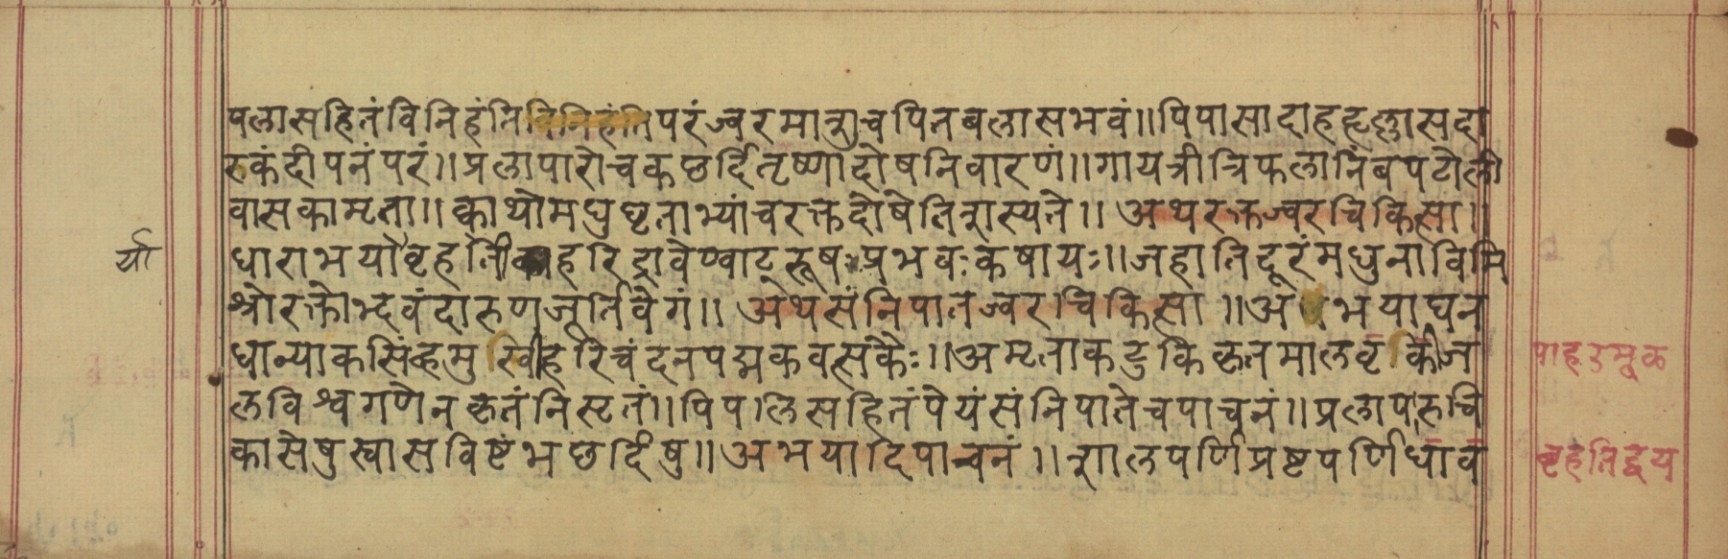 पलासहितंविनिहंतिविनिहंतिपरंज्वरमाशुचपितबलासभवं॥पिपासादाहहृल्लासदा
रुकंदीपनंपरं॥प्रलापारोचकछर्दितृष्णादोषनिवारणं॥गायत्रीत्रिफलानिंबपटोली
वासकामृता॥क्वाथोमधुघृताभ्यांचरक्तदोषेतिशस्यते॥अथरक्तज्वरचिकित्सा॥
र्या धाराभयावृहतीहरिद्रावेण्वाटरूषःप्रभवःकषायः॥जहातिदूरंमधुनाविमि
श्रोरक्तोभ्दवंदारुणजूर्तिवेगं॥अथसंनिपातज्वरचिकित्सा॥अभयाघन
धान्याकसिंव्हमुखीर्हरिचंदनपद्मकवत्सकैः॥अमृताकटुकिकृतमालवृकीज
लविश्वगणेनकृतंनिसृतं॥पिपलिसहितंपेयंसंनिपातेचपाचनं॥प्रलापारुचि
कासेषुस्वासविष्टंभछर्दिषु॥अभयादिपाचनं॥शालपर्णिप्रष्टपर्णिधाव
पाहउमूळ
बृहतिद्वय